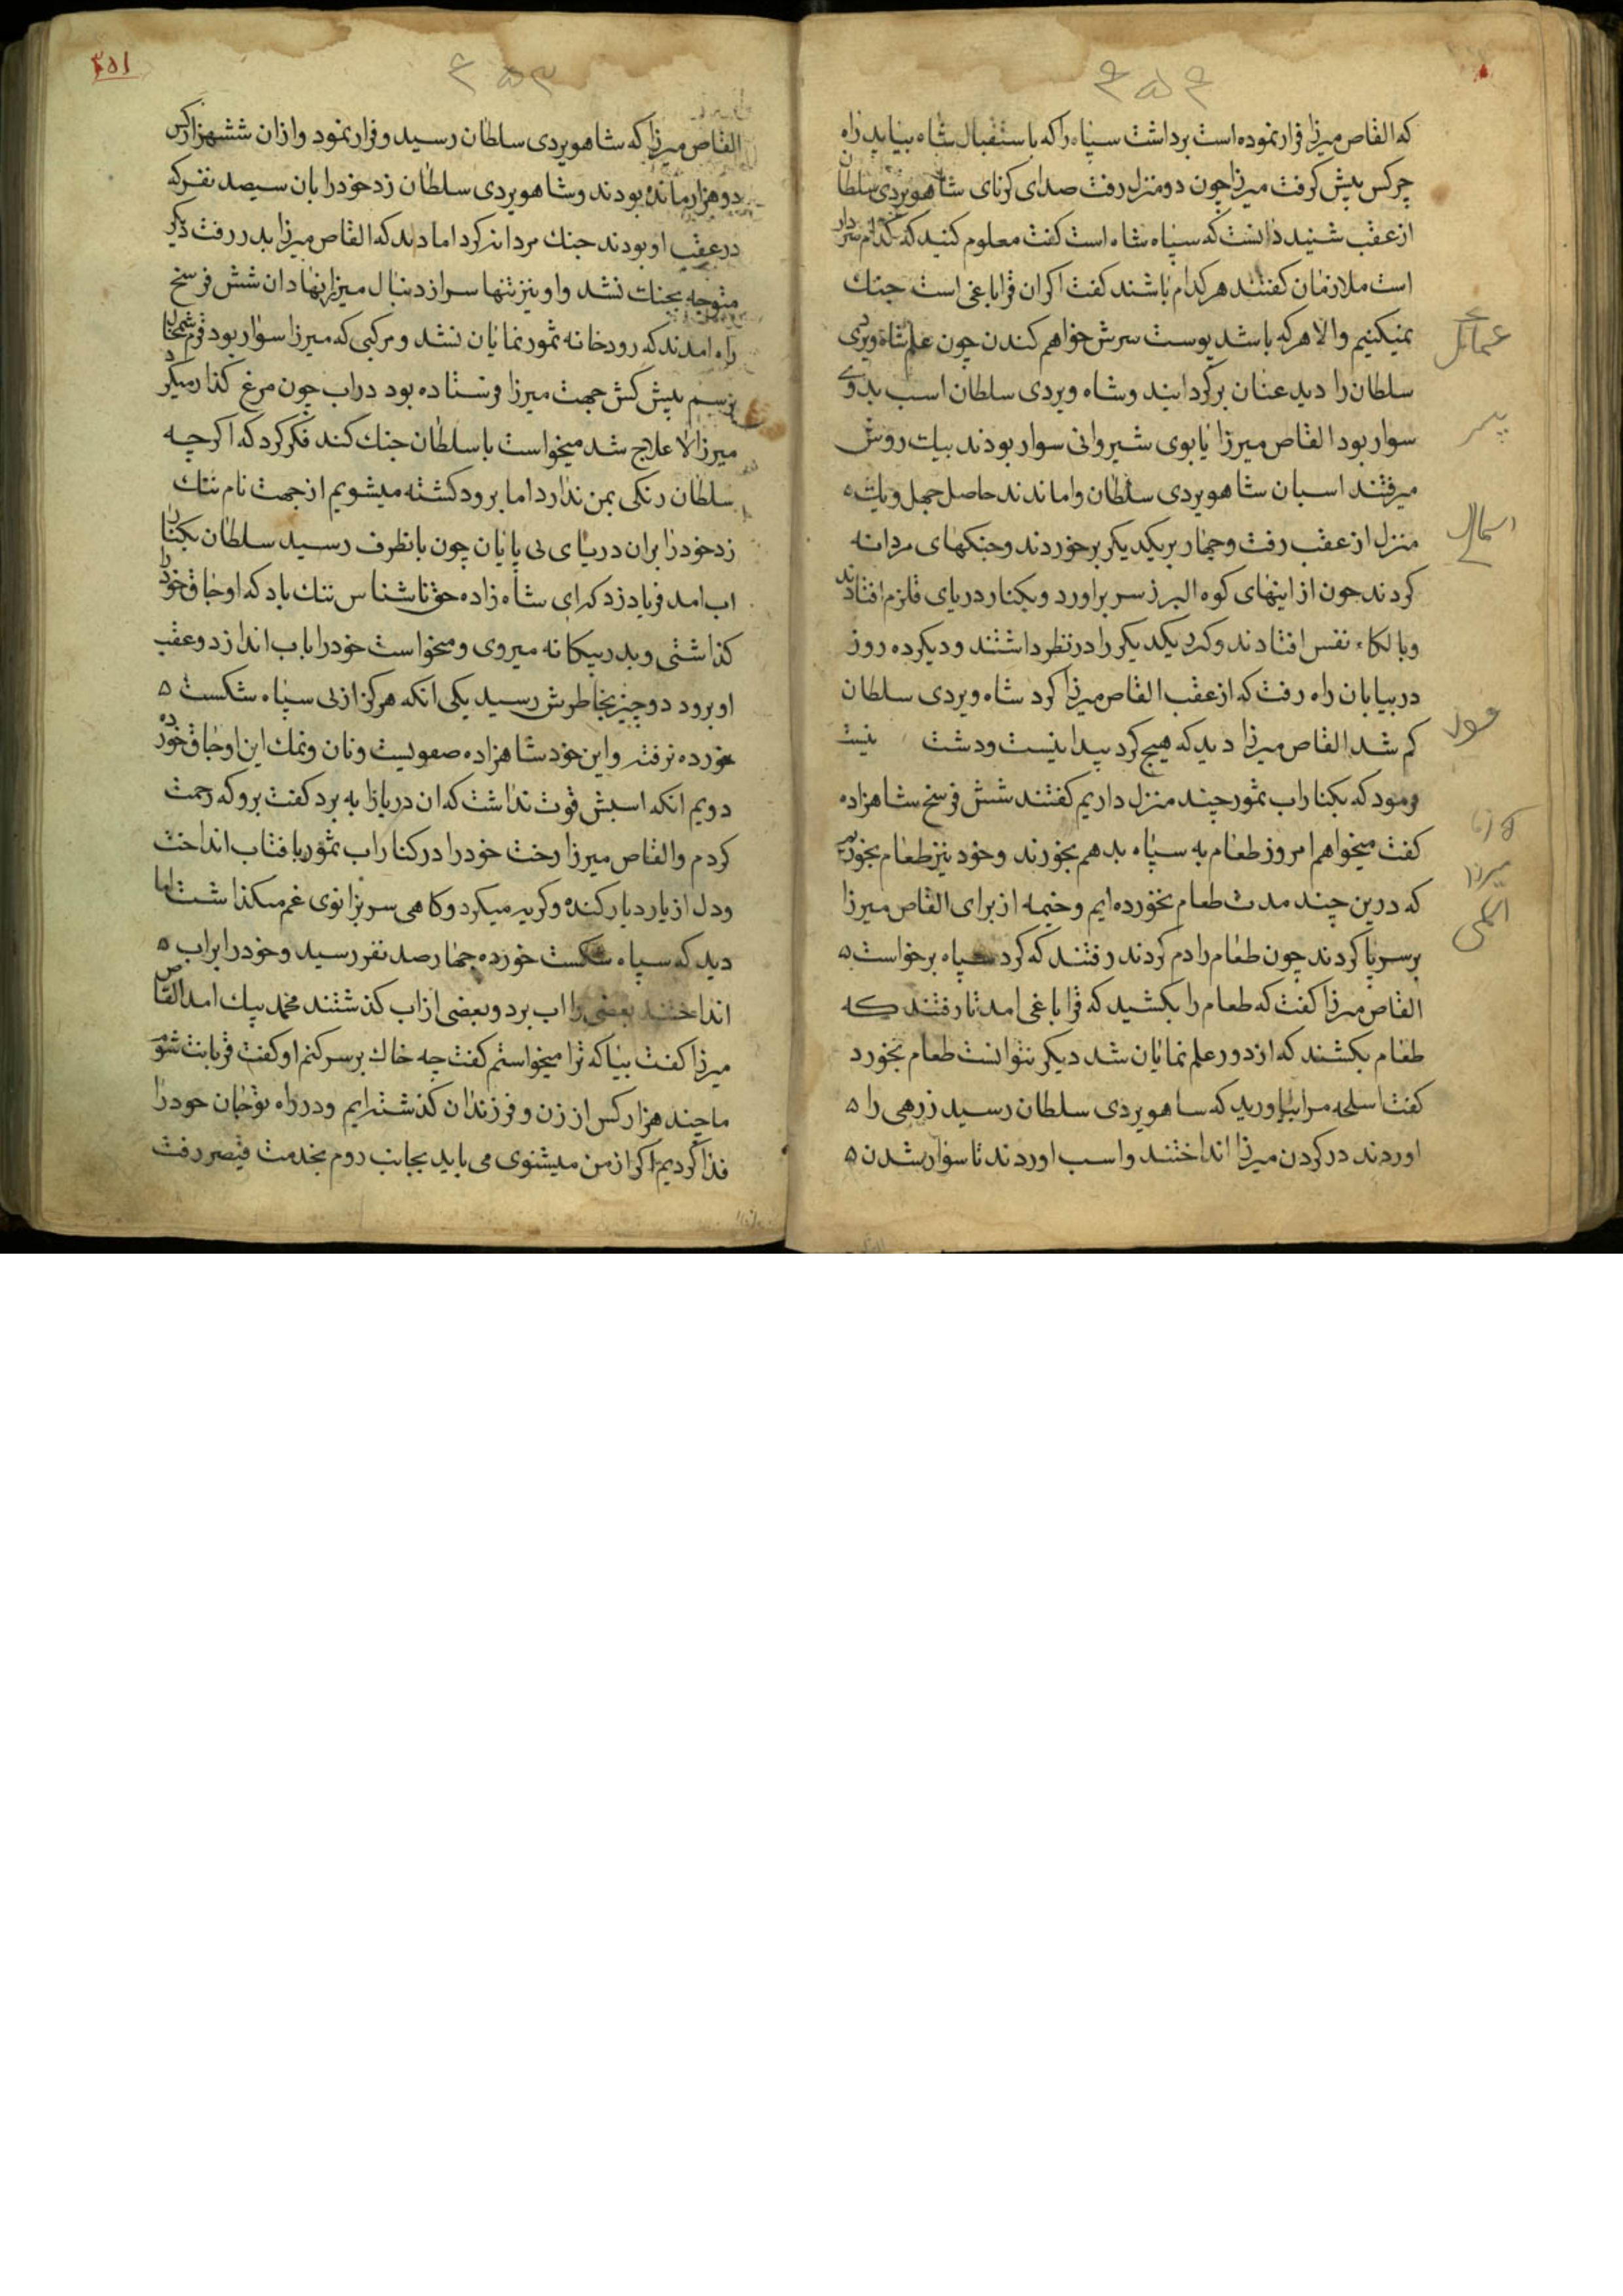 ۴۵۴
که القاص میرزا فرار نموده است برداشت سپاه را که باستقبال شاه بیاید راه
چرکس پیش گرفت میرزا چون دو منزل رفت صدای کرنای شاهویردی سلطان
از عقب شنید دانست که سپاه شاه است گفت معلوم کنید که کدام سردار
است ملازمان گفتند هر کدام باشند گفت اگر ان قراباغی است جنك
نمیکنیم والا هر که باشد پوست سرش خواهم کندن چون علم شاه ویردی
سلطان را دید عنان برگردانید و شاه ویردی سلطان اسب بدوی
سوار بود القاص میرزا یابوی شیروانی سوار بودند بیك روش
میرفتند اسبان شاهویردی سلطان واماندند حاصل چهل ویك
منزل از عقب رفت و چهار بر یکدیگر برخوردند و جنکهای مردانه
کردند چون از اینهای کوه البرز سر براورد و بکنار دریای قلزم افتادند
و با لکاء نفس افتادند و کرد یکدیگر را در نظر داشتند و دیگر ده روز
در بیابان راه رفت که از عقب القاص میرزا کرد شاه ویردی سلطان
کم شد القاص میرزا دید که هیچ کرد پیدا نیست و دشت نیست
فرمود که بکنار اب ثمور چند منزل داریم گفتند شش فرسخ شاهزاده
گفت میخواهم امروز طعام به سپاه بدهم بخورند و خود نیز طعام بخوریم
که درین چند مدت طعام نخورده ایم و خیمه از برای القاص میرزا
بر سر پا کردند چون طعام را دم کردند رفتند که کرد سپاه برخواست
القاص میرزا گفت که طعام را بکشید که قراباغی امد تا رفتند که
طعام بکشند که از دور علم نمایان شد دیگر نتوانست طعام بخورد
گفت اسلحه مرا بیاورید که ساهویردی سلطان رسید زرهی را
اوردند در گردن میرزا انداختند و اسب اوردند تا سوار شدن
اسمال
میرزا
۴۵۳
۴۵۱
القاص میرزا که شاهویردی سلطان رسید و فرار نمود و ازان ششهزار کس
دو هزار مانده بودند و شاهویردی سلطان زد خود را بان سیصد نفر که
در عقب او بودند جنك مردانه کرد اما دید که القاص میرزا بدر رفت دیگر
متوجه بجنك نشد و او نیز تنها سر از دنبال میرزا نهاد ان شش فرسخ
راه امدند که رودخانه ثمور نمایان نشد و مرکبی که میرزا سوار بود قرم شمخال
برسم پیش کش جهت میرزا فرستاده بود در اب چون مرغ گذار میکرد
میرزا لا علاج شد میخواست با سلطان جنك کند فکر کرد که اگر چه
سلطان رنکی بمن ندارد اما برود کشته میشویم از جهت نام ننك
زد خود را بران دریای بی پایان چون بانطرف رسید سلطان بکنار
اب امد فریاد زد که ای شاه زاده حق ناشناس ننك باد که اوجاق خود را
گذاشتی و بدر بیکانه میروی و میخواست خود را باب اندازد و عقب
او برود دو چیز بخاطرش رسید یکی آنکه هرگز از بی سپاه شکست
خورده نرفته و این خود شاهزاده صفویست و نان و نمك این اوجاق خورده
دویم انکه اسبش قوت نداشت که ان دریا را به برد گفت برو که رحمت
کردم و القاص میرزا رخت خود را در کنار اب ثمور بافتاب انداخت
و دل از یار دیار کنده و گریه میکرد و کاهی سر بزانوی غم میگذاشت اما
دید که سپاه شکست خورده چهار صد نفر رسید و خود را براب
انداختند بعضی را اب برد و بعضی از اب گذشتند محمد بیك امد القاص
میرزا گفت بیا که ترا میخواستم گفت چه خاك بر سر کنم او گفت قربانت شوم
ما چند هزار کس از زن و فرزندان گذشته ایم و در راه تو جان خود را
فدا کردیم اگر از من میشنوی می باید بجانب روم بخدمت قیصر رفت